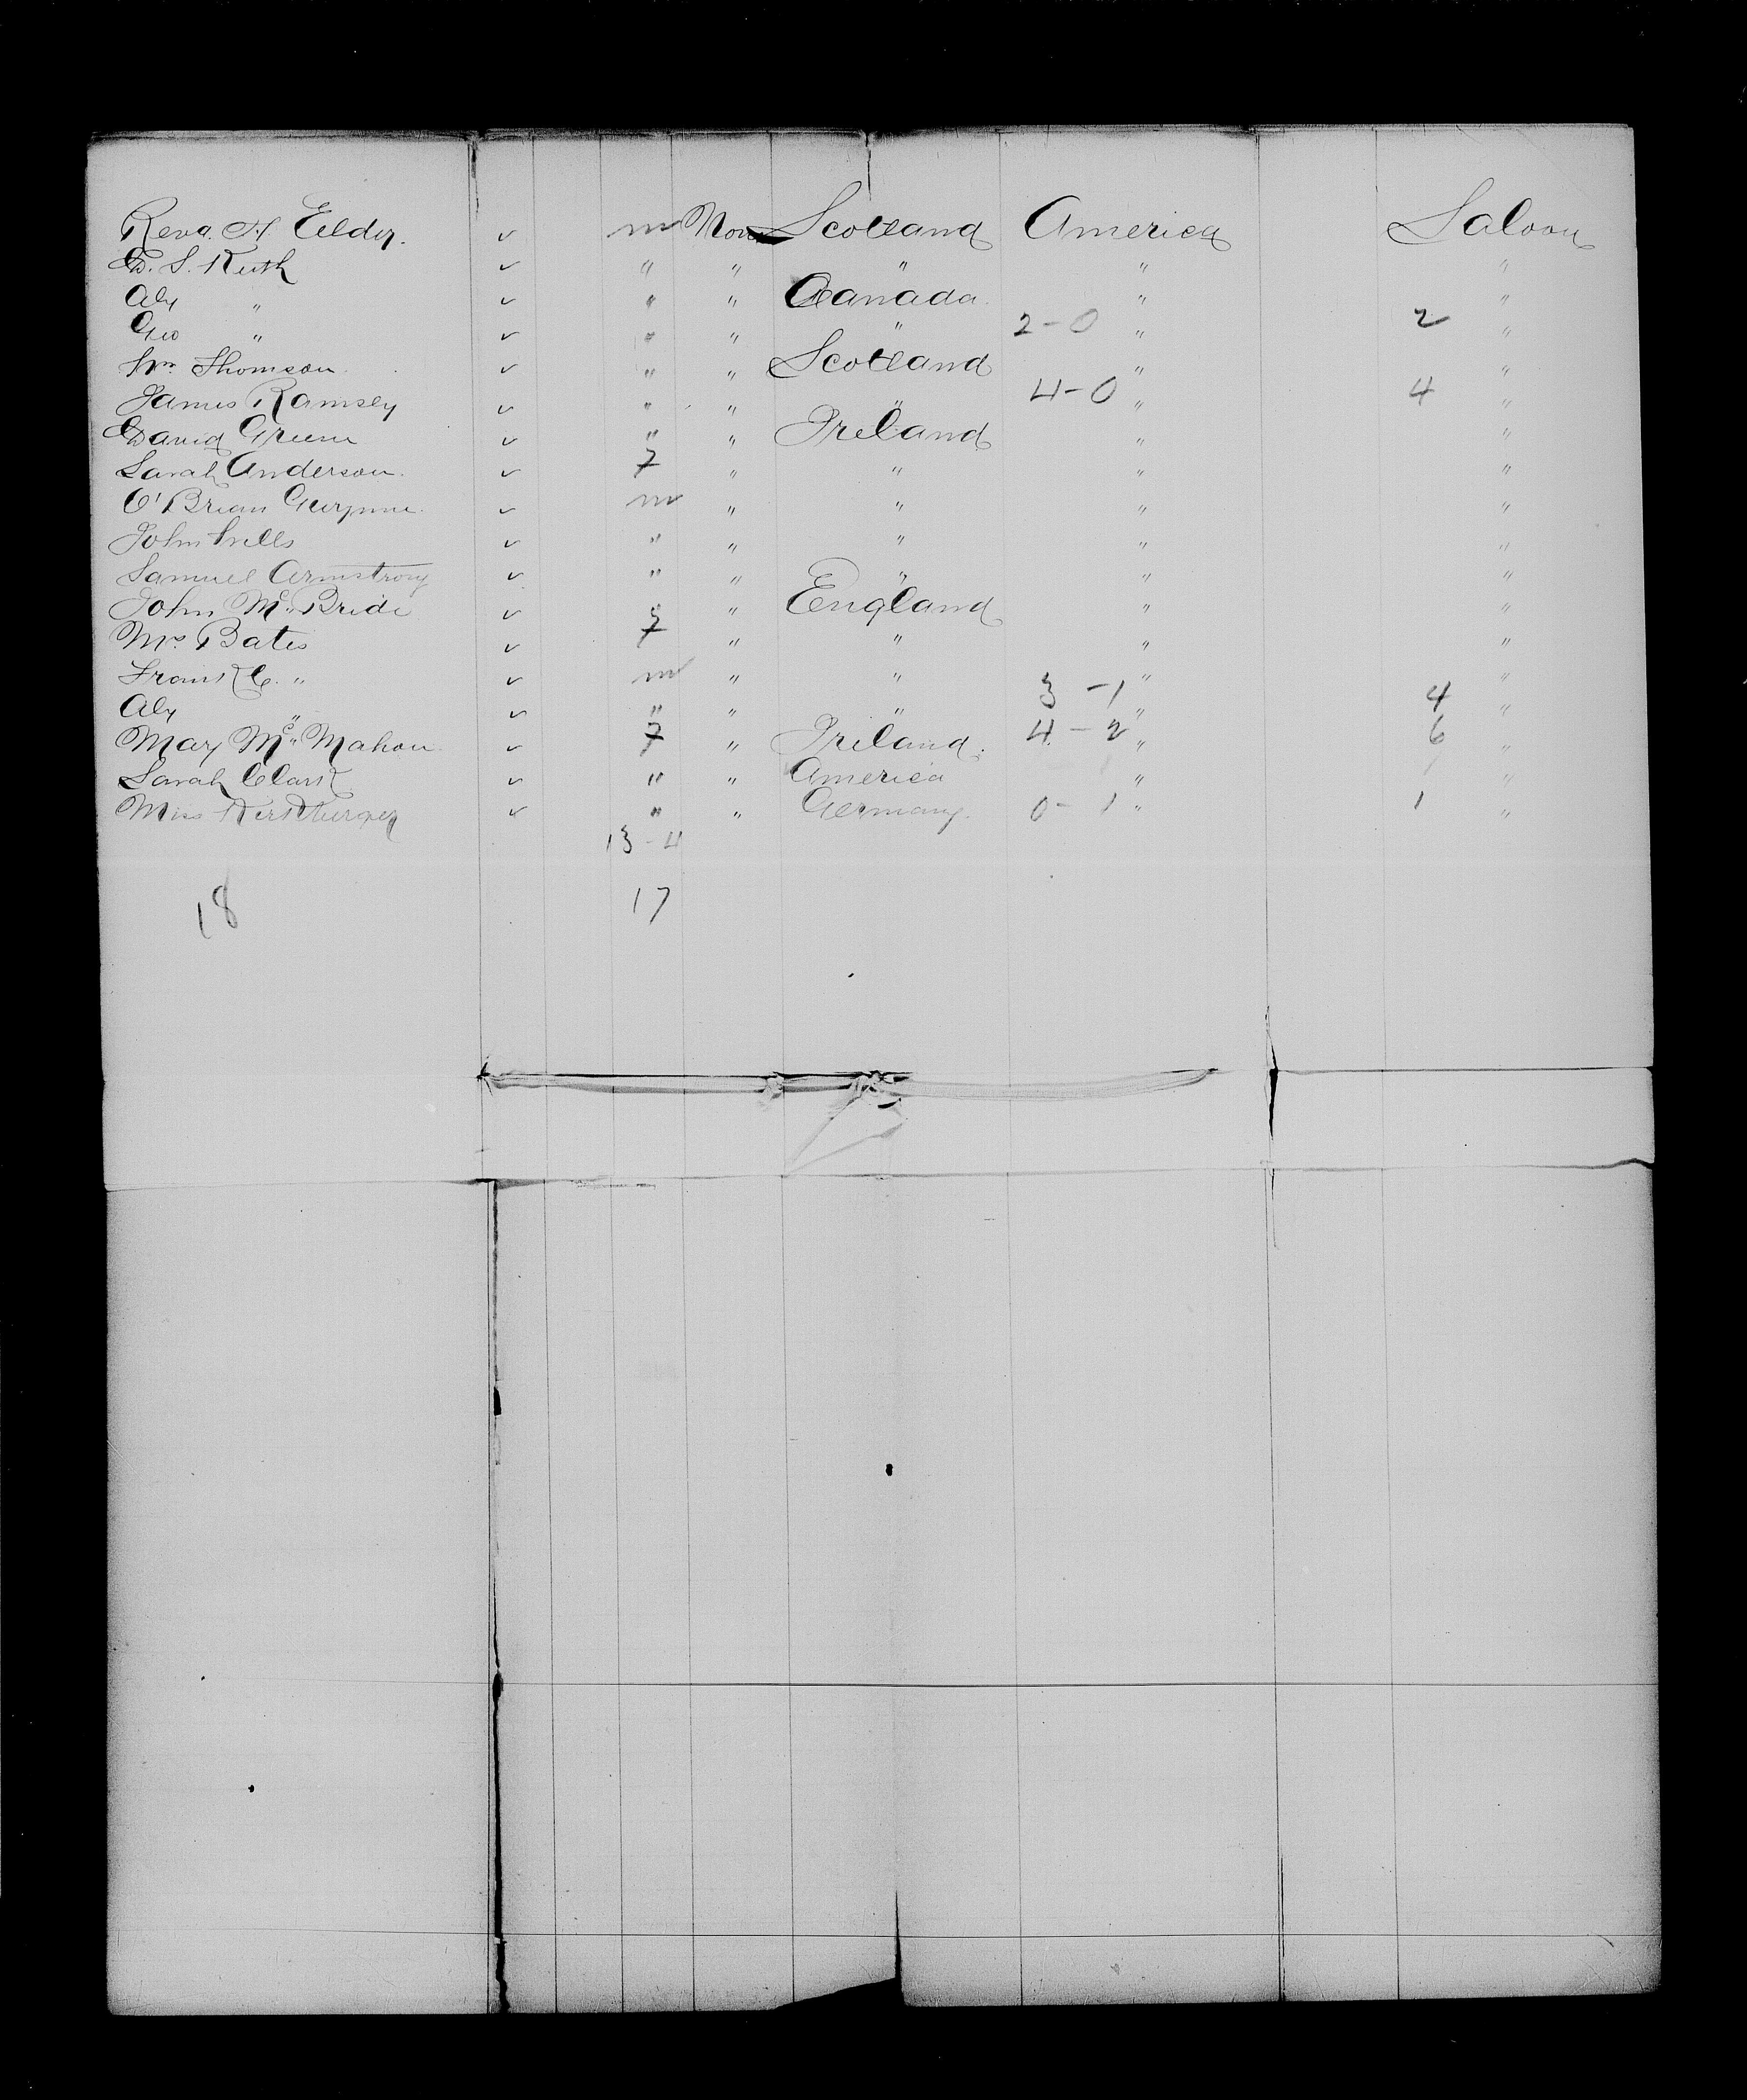 Revd. H. Elder. ✓ m None Scotland America Saloon
D. S. Keith ✓ " " " " "
Alx " ✓ " " Canada. " "
Geo " ✓ " " " 2-0 " 2 "
Wm. Thomson. ✓ " " Scotland " "
James Ramsey ✓ " " " 4-0 " 4 "
David Green ✓ " " Ireland " "
Sarah Anderson. ✓ F " " " "
O'Brian ✓ m " " " "
John ✓ " " " " "
Samuel Armstrong ✓ " " " " "
John Mc Bride ✓ " " England " "
Mrs. Bates ✓ F " " " "
Frank C. " ✓ m " " " "
Alx " ✓ " " " 3-1 " 4 "
Mary Mc Mahon ✓ F " Ireland. 4-2 " 6 "
Sarah Clark ✓ " " America " "
Miss ✓ " " Germany. 0-1 " 1 "
13-4
18 17